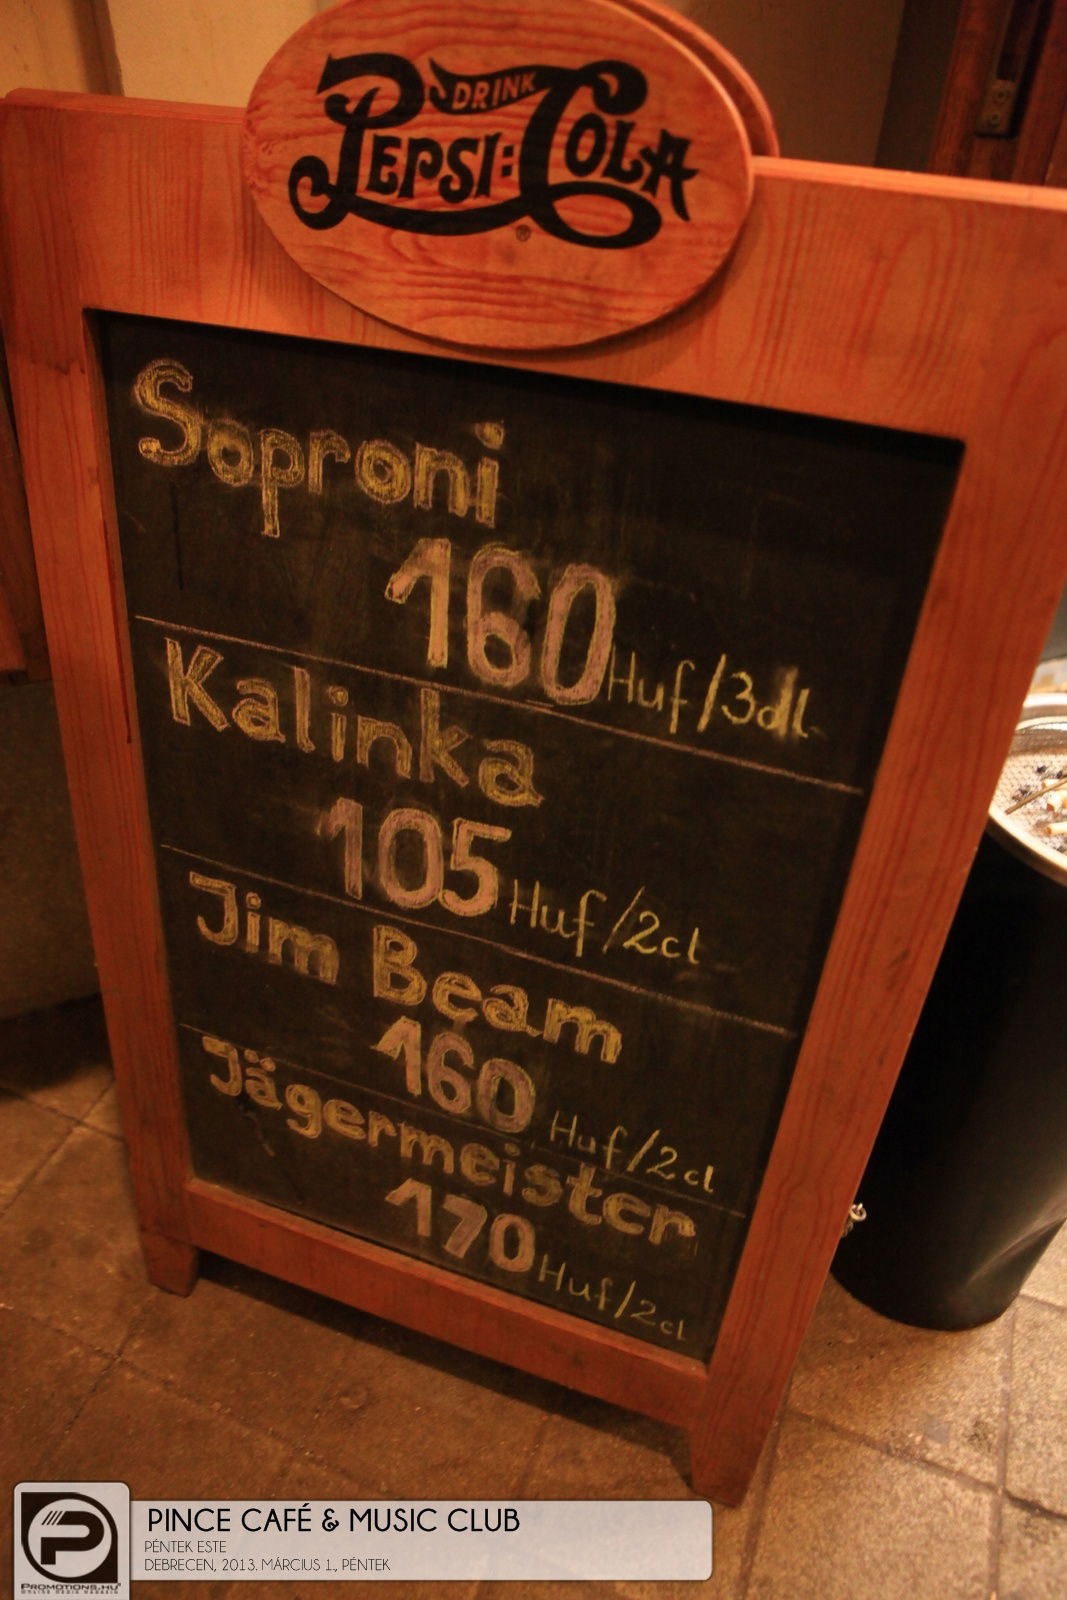 DRINK
PEPSI:COLA
®
Soproni
160 Huf/3dl.
Kalinka
105 Huf/2cl
Jim Beam
160 Huf/2cl
Jägermeister
170 Huf/2cl
PINCE CAFÉ & MUSIC CLUB
PÉNTEK ESTE
DEBRECEN, 2013. MÁRCIUS 1., PÉNTEK
PROMOTIONS.HU
ONLINE MEDIA MAGAZIN